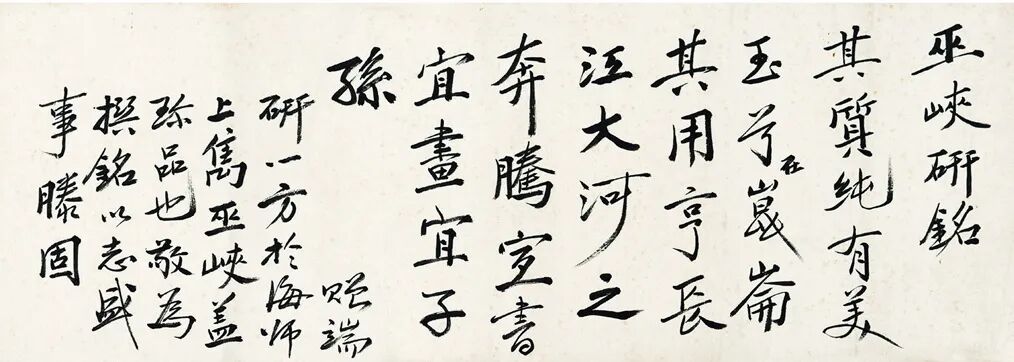 巫峽研銘
其質純有美
玉兮在崑崙
其用亨長
江大河之
奔騰宜書
宜畫宜子
孫
端
研一方於海师
上雋巫峽蓋
珍品也敬為
撰銘以志盛
事滕固